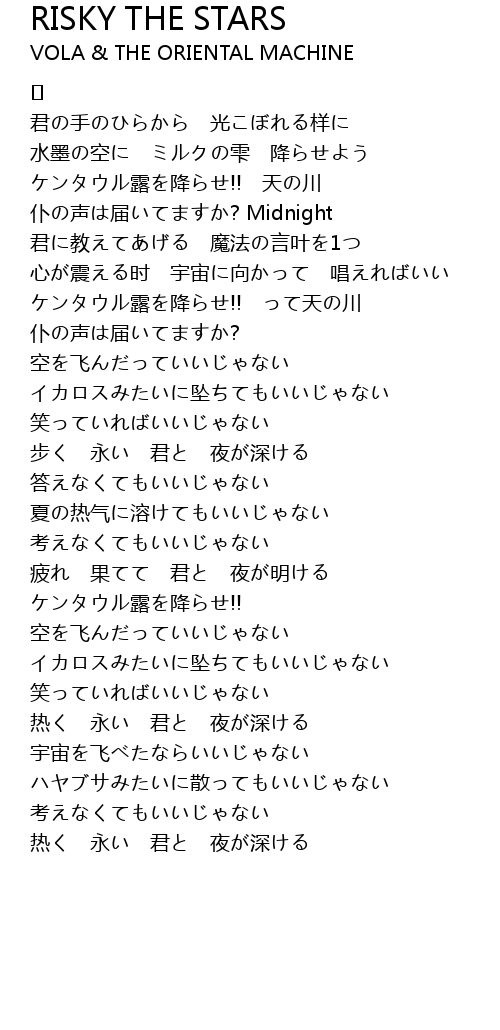 RISKY THE STARS
VOLA & THE ORIENTAL MACHINE
[]
君の手のひらから　光こぼれる様に
水墨の空に　ミルクの雫　降らせよう
ケンタウル露を降らせ!!　天の川
仆の声は届いてますか? Midnight
君に教えてあげる　魔法の言叶を1つ
心が震える时　宇宙に向かって　唱えればいい
ケンタウル露を降らせ!!　って天の川
仆の声は届いてますか?
空を飞んだっていいじゃない
イカロスみたいに坠ちてもいいじゃない
笑っていればいいじゃない
歩く　永い　君と　夜が深ける
答えなくてもいいじゃない
夏の热气に溶けてもいいじゃない
考えなくてもいいじゃない
疲れ　果てて　君と　夜が明ける
ケンタウル露を降らせ!!
空を飞んだっていいじゃない
イカロスみたいに坠ちてもいいじゃない
笑っていればいいじゃない
热く　永い　君と　夜が深ける
宇宙を飞べたならいいじゃない
ハヤブサみたいに散ってもいいじゃない
考えなくてもいいじゃない
热く　永い　君と　夜が深ける